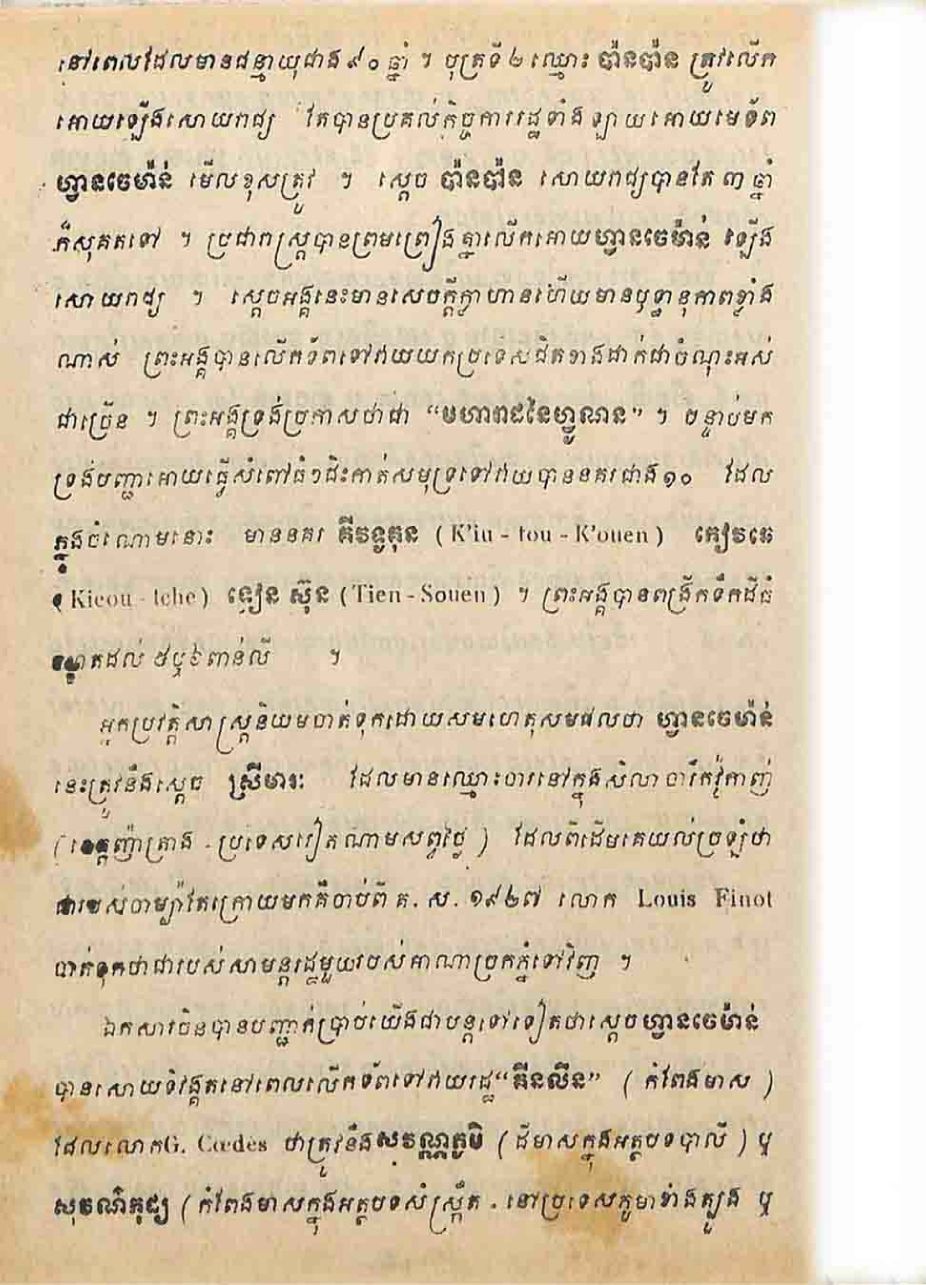 នៅពេលដែលមានជន្មាយុជាង ៩០ ឆ្នាំ ។ បុត្រទី ២ ឈ្មោះ ប៉ានប៉ាន ត្រូវលើក
អោយឡើងសោយរាជ្យ តែបានប្រគល់កិច្ចការរដ្ឋទាំងឡាយអោយមេទ័ព
ហ្វានចេម៉ាន់ មើលខុសត្រូវ ។ ស្តេច ប៉ានប៉ាន សោយរាជ្យបានតែ ៣ ឆ្នាំ
ក៏សុគតទៅ ។ ប្រជារាស្ត្របានព្រមព្រៀងគ្នាលើកអោយហ្វានចេម៉ាន់ ឡើង
សោយរាជ្យ ។ ស្តេចអង្គនេះមានសេចក្តីក្លាហានហើយមានឫទ្ធានុភាពខ្លាំង
ណាស់ ព្រះអង្គបានលើកទ័ពទៅវាយយកប្រទេសជិតខាងដាក់ជាចំណុះអស់
ជាច្រើន ។ ព្រះអង្គទ្រង់ប្រកាសថាជា “មហារាជនៃហ្វូណន” ។ បន្ទាប់មក
ទ្រង់បញ្ជាអោយធ្វើសំពៅធំៗជិះកាត់សមុទ្រទៅវាយបាននគរជាង ១០ ដែល
ក្នុងចំណោមនោះ មាននគរ គីវទូគុន ( K'iu - tou - K'ouen ) កៀវចេ
( Kieou - tche ) ទៀន ស៊ុន ( Tien - Souen ) ។ ព្រះអង្គបានពង្រីកទឹកដីធំ
រហូតដល់ ៥ ឬ ៦ ពាន់លី ។
អ្នកប្រវត្តិសាស្ត្រនិយមចាត់ទុកដោយសមហេតុសមផលថា ហ្វានចេម៉ាន់
នេះត្រូវនឹងស្តេច ស្រីមារៈ ដែលមានឈ្មោះចារនៅក្នុងសិលាចារឹកវ៉ូកាញ់
( ខេត្តញ៉ាត្រាង - ប្រទេសវៀតណាមសព្វថ្ងៃ ) ដែលពីដើមគេយល់ច្រឡំថា
ជារបស់ចាម្ប៉ាតែក្រោយមកគឺចាប់ពី គ. ស. ១៩២៧ លោក Louis Finot
ចាត់ទុកថាជារបស់សាមន្តរដ្ឋមួយរបស់អាណាចក្រភ្នំទៅវិញ ។
ឯកសារចិនបានបញ្ជាក់ប្រាប់យើងជាបន្តទៅទៀតថាស្តេចហ្វានចេម៉ាន់
បានសោយទិវង្គតនៅពេលលើកទ័ពទៅវាយរដ្ឋ “គីនលីន” ( កំពែងមាស )
ដែលលោក G. Cœdès ថាត្រូវនឹងសុវណ្ណភូមិ ( ដីមាសក្នុងអត្ថបទបាលី ) ឬ
សុវណ៌កុដ្យ ( កំពែងមាសក្នុងអត្ថបទសំស្ក្រឹត - នៅប្រទេសភូមាខាងត្បូង ឬ